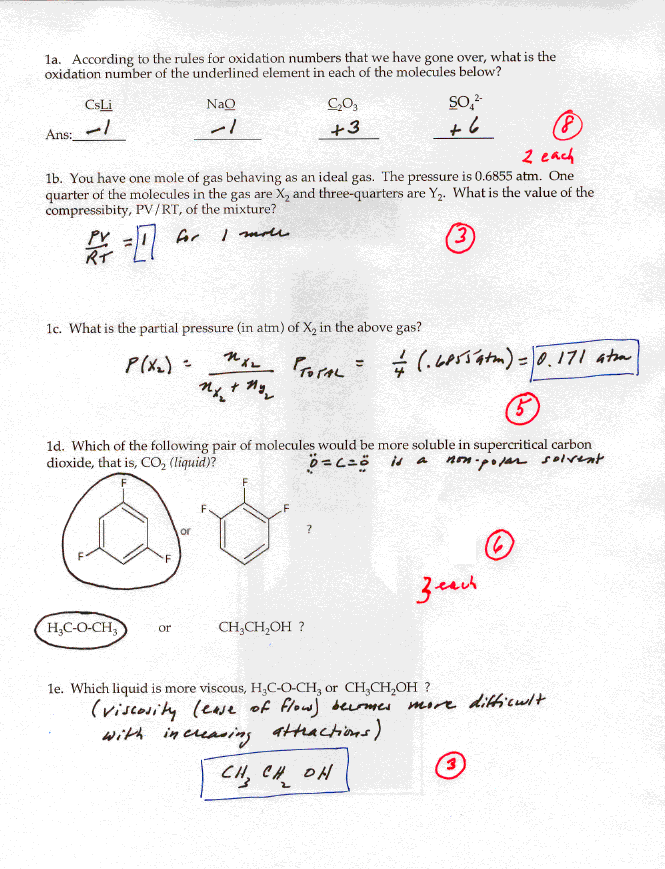 1a. According to the rules for oxidation numbers that we have gone over, what is the
oxidation number of the underlined element in each of the molecules below?
CsLi NaO C₂O₃ SO₄²⁻
Ans: -1 -1 +3 +6 8
2 each
1b. You have one mole of gas behaving as an ideal gas. The pressure is 0.6855 atm. One
quarter of the molecules in the gas are X₂ and three-quarters are Y₂. What is the value of the
compressibity, PV/RT, of the mixture?
PV/RT = 1 for 1 mole 3
1c. What is the partial pressure (in atm) of X₂ in the above gas?
P(X₂) = nX₂/(nX₂ + nY₂) PTOTAL = 1/4 (.6855 atm) = 0.171 atm
5
1d. Which of the following pair of molecules would be more soluble in supercritical carbon
dioxide, that is, CO₂ (liquid)? O=C=O is a non-polar solvent
F F
F F
or ?
F F
6
3 each
H₃C-O-CH₃ or CH₃CH₂OH ?
1e. Which liquid is more viscous, H₃C-O-CH₃ or CH₃CH₂OH ?
(viscosity (ease of flow) becomes more difficult
with increasing attractions)
CH₃ CH₂ OH 3